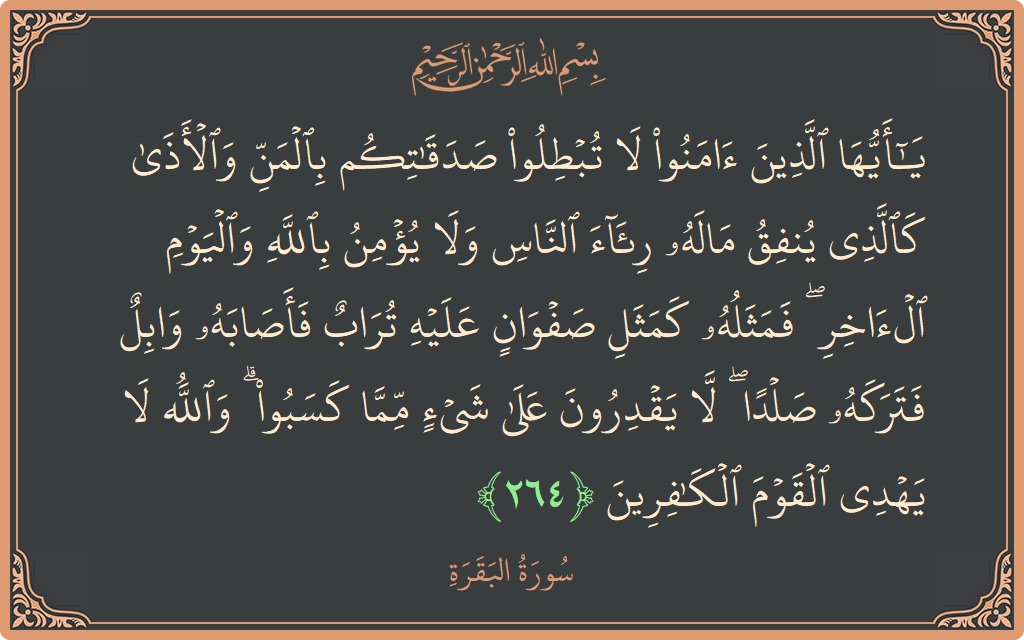 بِسْمِ اللَّهِ الرَّحْمَٰنِ الرَّحِيمِ
يَـٰٓأَيُّهَا ٱلَّذِينَ ءَامَنُوا۟ لَا تُبْطِلُوا۟ صَدَقَـٰتِكُم بِٱلْمَنِّ وَٱلْأَذَىٰ
كَٱلَّذِى يُنفِقُ مَالَهُۥ رِئَآءَ ٱلنَّاسِ وَلَا يُؤْمِنُ بِٱللَّهِ وَٱلْيَوْمِ
ٱلْـَٔاخِرِ ۖ فَمَثَلُهُۥ كَمَثَلِ صَفْوَانٍ عَلَيْهِ تُرَابٌ فَأَصَابَهُۥ وَابِلٌ
فَتَرَكَهُۥ صَلْدًا ۖ لَّا يَقْدِرُونَ عَلَىٰ شَىْءٍ مِّمَّا كَسَبُوا۟ ۗ وَٱللَّهُ لَا
يَهْدِى ٱلْقَوْمَ ٱلْكَـٰفِرِينَ ﴿٢٦٤﴾
سُورَةُ البَقَرَةِ